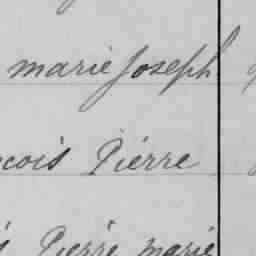 marie Joseph
çois Pierre
Pierre marie